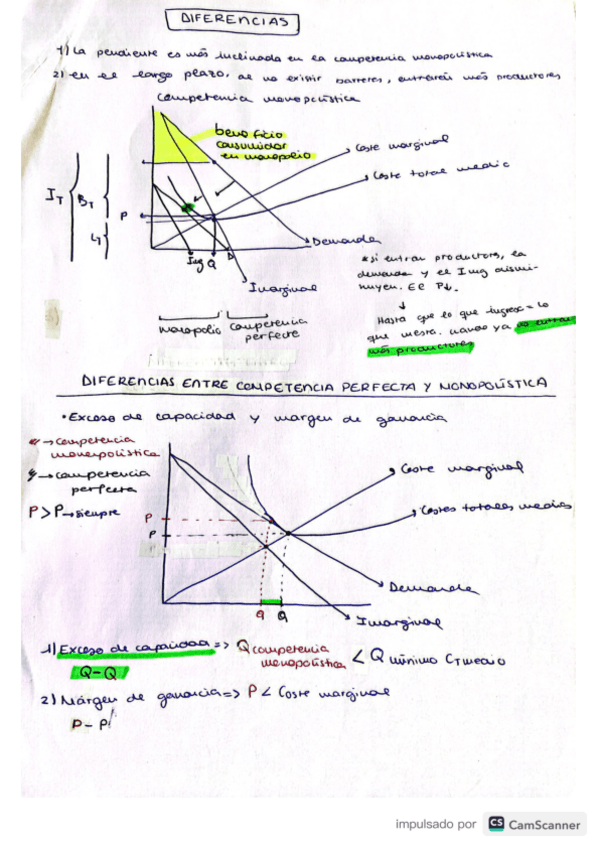 DIFERENCIAS
1) La pendiente es más inclinada en la competencia monopolística
2) en el largo plazo, al no existir barreras, entrarán más productores
Competencia monopolística
beneficio
consumidor
en monopolio
Coste marginal
Coste total medio
IT
BT
P
Demanda
Img Q
Imarginal
*si entran productores, la
demanda y el Img dismi-
nuyen. El P↓.
↓
Hasta que lo que ingresa = lo
que cuesta. cuando ya no entran
más productores
monopolio
competencia
perfecta
DIFERENCIAS ENTRE COMPETENCIA PERFECTA Y MONOPOLÍSTICA
•Exceso de capacidad y margen de ganancia
→ competencia
monopolística
→ competencia
perfecta
P > P → siempre
Coste marginal
Costes totales medios
P
P
Demanda
Imarginal
Q Q
1) Exceso de capacidad => Q competencia monopolística < Q mínimo CTmedio
Q - Q
2) Márgen de ganancia => P < Coste marginal
P - P
impulsado por CS CamScanner